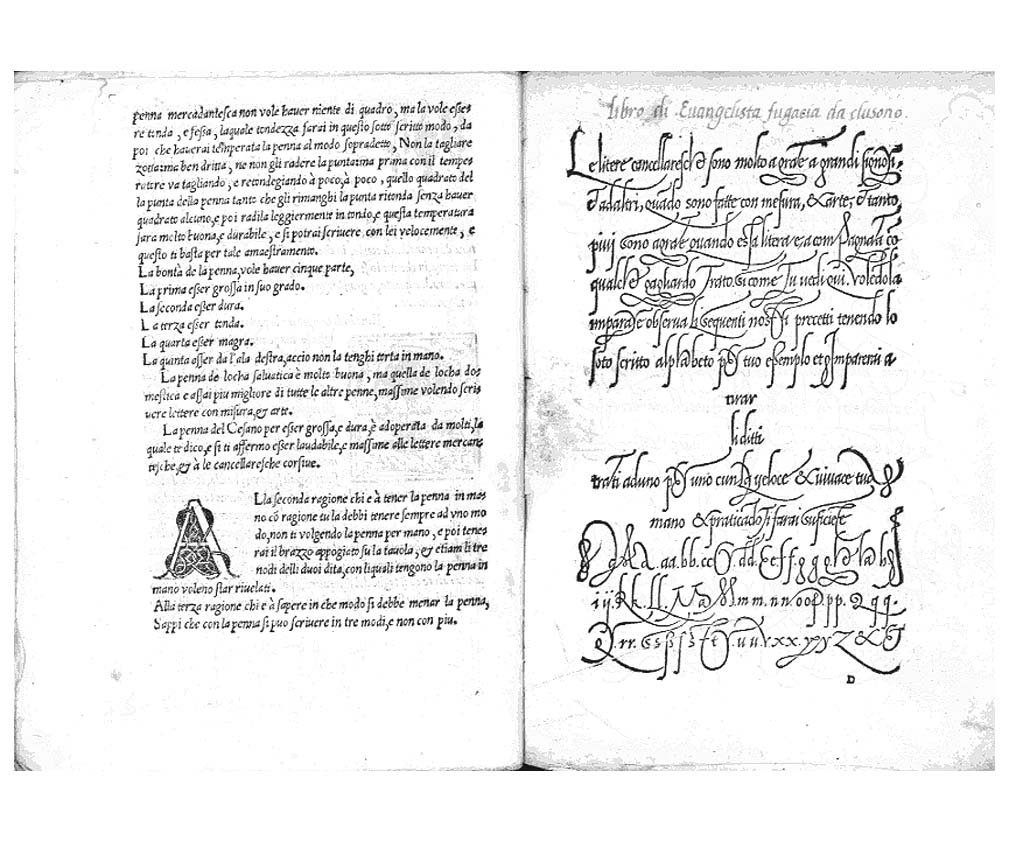 penna mercadantesca non vole hauer niente di quadro, ma la vole esse=
re tonda, e fessa, laquale tondezza farai in questo sotto scritto modo, da
poi che hauerai temperata la penna al modo sopradetto, Non la tagliare
zotta: ma ben dritta, ne non gli radere la punta: ma prima con il tempe=
ratore va tagliando, e retondegiando à poco, à poco, quello quadrato del
la punta della penna tanto che gli rimanghi la punta ritonda senza hauer
quadrato alcuno, e poi radila leggiermente in tondo, e questa temperatura
sara molto buona, e durabile, e si potrai scriuere con lei velocemente, e
questo ti basta per tale amaestramento.
La bontà de la penna, vole hauer cinque parte,
La prima esser grossa in suo grado.
La seconda esser dura.
La terza esser tonda.
La quarta esser magra.
La quinta esser da l'ala destra, accio non la tenghi torta in mano.
La penna de locha saluatica è molto buona, ma quella de locha do=
mestica e assai piu migliore di tutte le altre penne, massime volendo scri=
uere lettere con misura, & arte.
La penna del Cesano per esser grossa, e dura, è adoperata da molti, la
quale te dico, e si ti affermo esser laudabile, e massime alle lettere mercan=
tesche, & à le cancellaresche corsiue.
ALla seconda ragione chi e à tener la penna in ma=
no cō ragione tu la debbi tenere sempre ad vno mo
do, non ti volgendo la penna per mano, e poi tene=
rai il brazzo appogiato su la tauola, & etiam li tre
nodi delli duoi dita, con li quali tengono la penna in
mano voleno star riuelati.
Alla terza ragione chi e à sapere in che modo si debbe menar la penna,
Sappi che con la penna si puo scriuere in tre modi, e non con piu.
libro di Euangelista fugacia da clusono.
Le litere cancellaresche sono molto a grate a grandi signori,
& ad altri, quādo sono fatte con mesura, & arte, & tanto,
piu sono agrate quando essa litera eza compagnata cō
qualche gagliardo Trato, si come Tu vedi qui. Volēdo la
imparare obserua li sequenti nostri precetti tenendo lo
soto scritto alphabeto per tuo esemplo et Imparerai a
tirar
li ditti
trati aduno per uno cum la veloce & viuace tua
mano & praticādo ti farai suficiete
A. aa. bb. cc. dd. Ee ff. ggg h h
i ij. Rk. ll. M m. nn. oo. pp. 2qq.
rr. Gsſs t. uu. v. xx. yy Z &
D